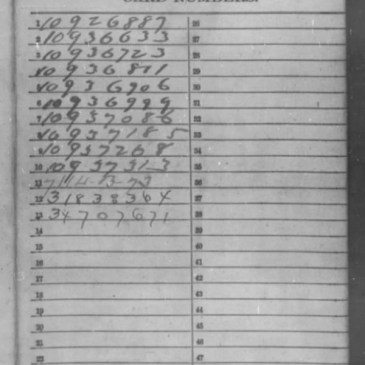 CARD NUMBERS.
1 10926887 26
2 10936633 27
3 10936723 28
4 10936811 29
5 10936906 30
6 10936999 31
7 10937086 32
8 10937185 33
9 10937268 34
10 10937313 35
11 36
12 31838364 37
13 34707671 38
14 39
15 40
16 41
17 42
18 43
19 44
20 45
21 46
22 47